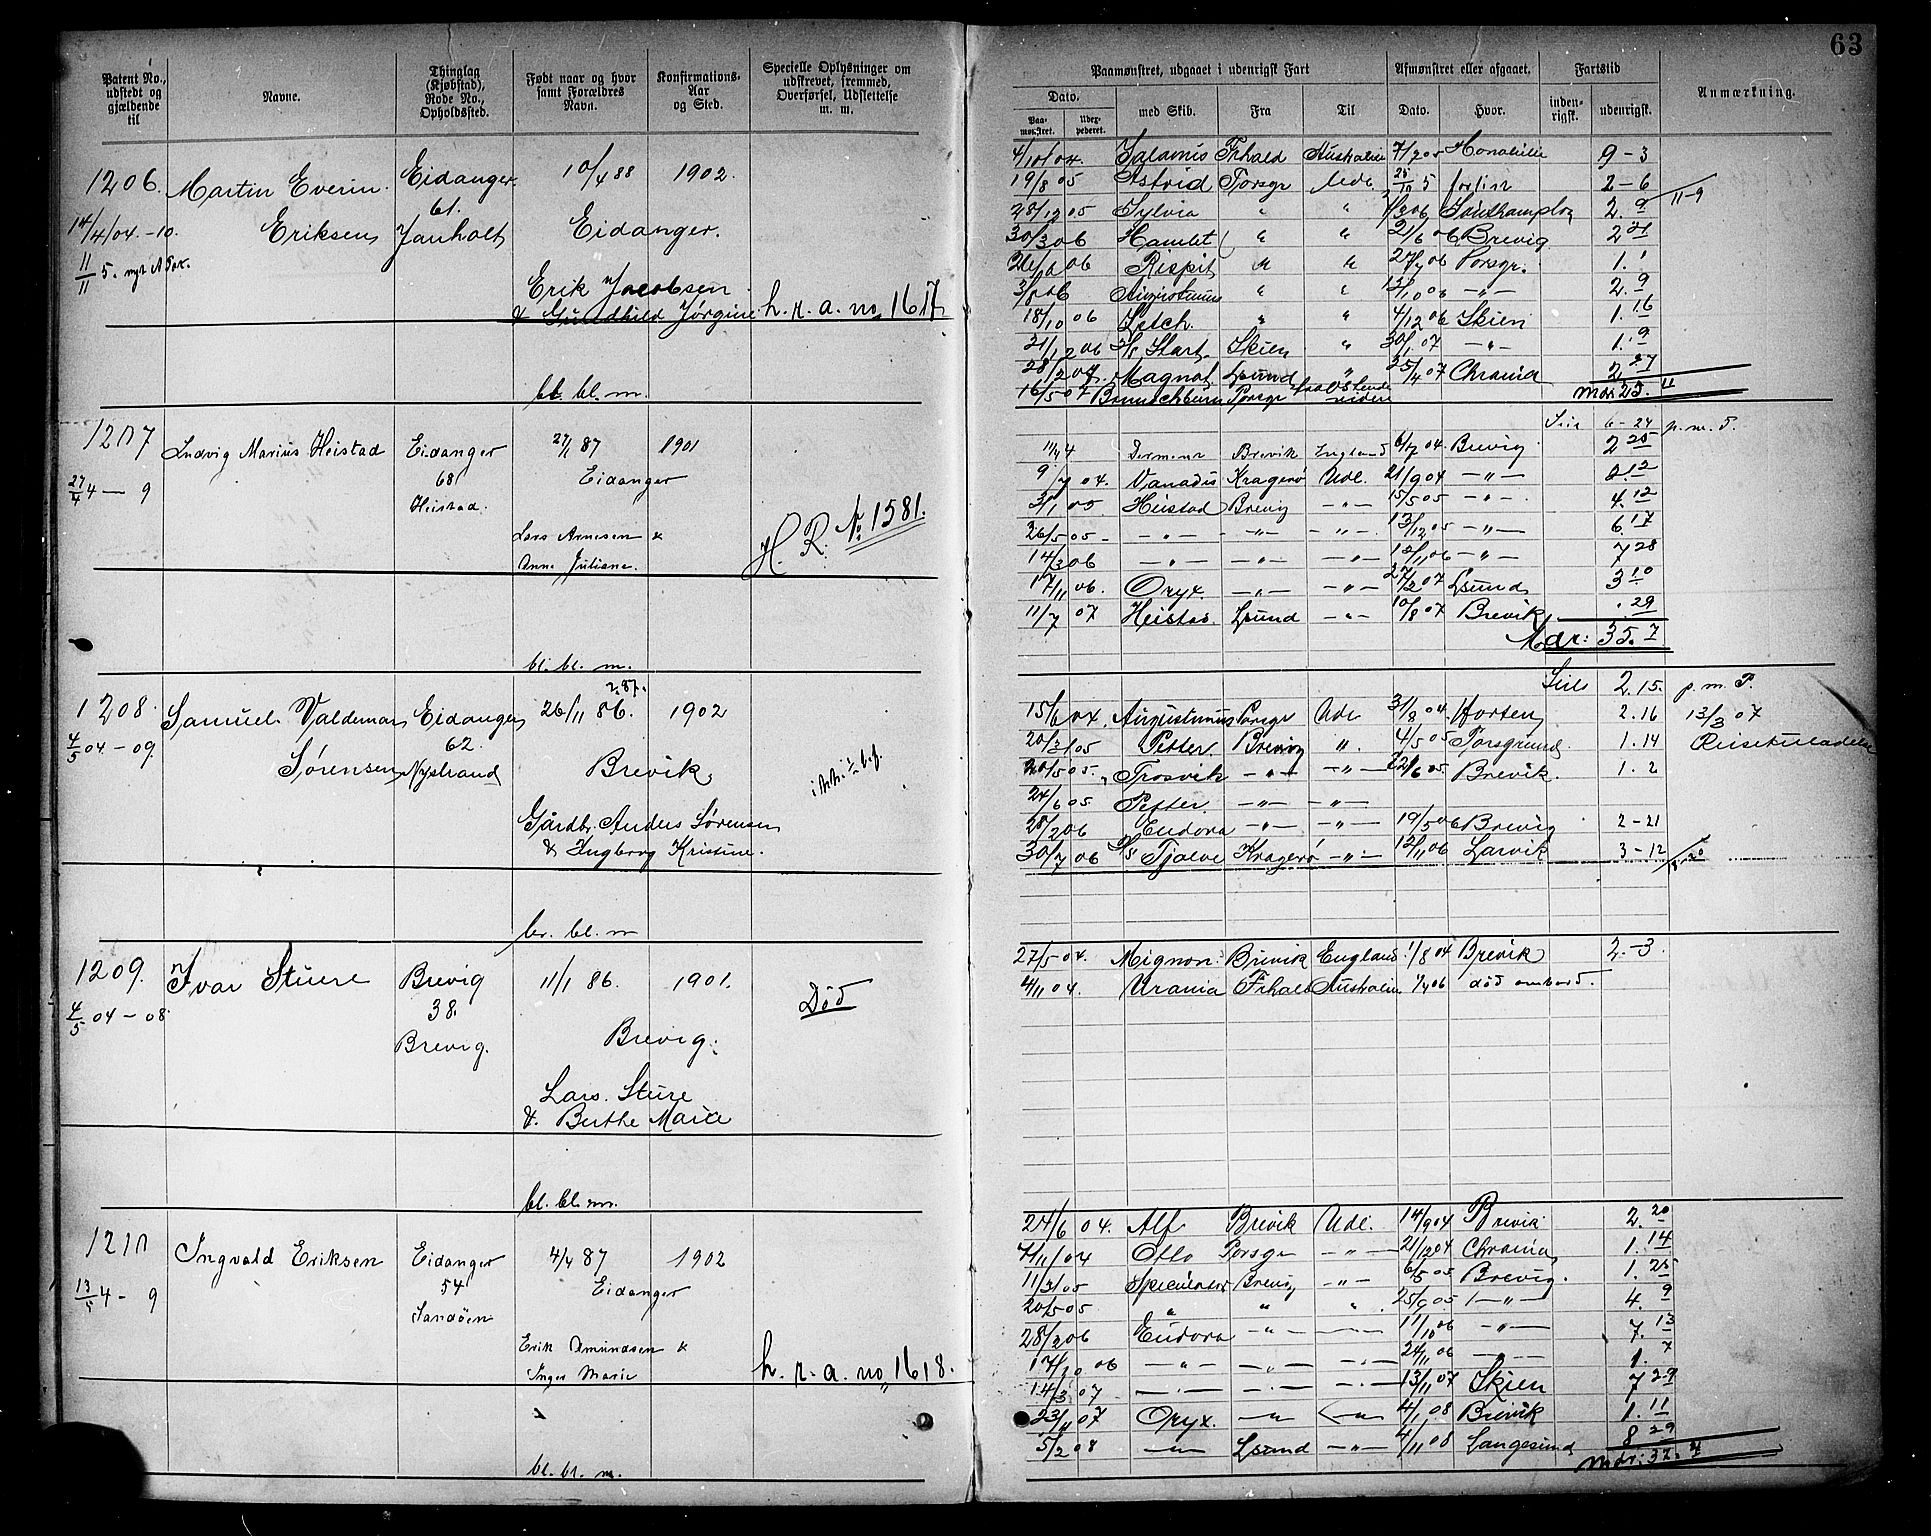 63
Patent No., udstedt og gjældende til
Navne.
Thinglag (Kjøbstad), Rode No., Opholdssted.
Født naar og hvor samt Forældres Navn.
Konfirmations- Aar og Sted.
Specielle Oplysninger om udskrevet, fremmed, Overførsel, Udslettelse m. m.
Paamønstret, udgaaet i udenrigsk Fart
Afmønstret eller afgaaet.
Fartstid
Anmærkning.
Dato.
Paa- mønstret.
Udex- pederet.
med Skib.
Fra
Til
Dato.
Hvor.
inden- rigsk.
udenrigsk.
1206. Martin Everin Eidanger. 10/4 88 1902.
61.
14/4/04.-10. Eriksen Janholt Eidanger.
11/11 5.
Erik Jacobsen
& Gundhild Jørgine h. r. a. no 1617
bl. bl. m.
4/10 04. Salamis Frhald Australien 7/7 05 9-3
19/8 05 Astrid Porsgr Udl. 2-6
28/12 05 Sylvia " " Southampton 2.9 11-9
30/3 06 Hamlet " " 21/6 06 Brevig 2 21
06 Rispit " " 06 Porsgr. 1.1
3/8 06 " " 12/10 06 -"- 2.9
18/10 06 " " 4/12 06 Skien 1.16
21/12 06 Start Skien " 30/1 07 -"- 1.9
28/2 07. Magnat Lsund " 25/4 07 Chrania 2 27
16/5 07 Porsgr
Mdr 25. 11
1207 Ludvig Marius Heistad Eidanger 27/1 87 1901
27/4 4 - 9 68 Eidanger
Heistad.
Lars Arnesen &
Anne Juliane.
H. R. No. 1581.
bl. bl. m.
6-24 p.m. 5.
11/4 4 Brevik England 6/7 04. Brevig 2 25
9/7 04. Vanadis Kragerø Udl. 21/9 04 -"- 2.12
3/1 05 Heistad Brevig -"- 15/5 05 -"- 4.12
26/5 05 -"- -"- -"- 13/12 05 -"- 6.17
14/3 06 -"- -"- -"- 12/11 06 -"- 7 28
17/11 06. Oryx. -"- -"- 27/2 07 Lsund 3 10
11/7 07 Heistad. Lsund -"- 10/8 07 Brevik . 29
Mdr: 35. 7
1208. Samuel Valdemar Eidanger 26/11 86. 1902
2.87.
4/5 04 - 09. 62.
Sørensen Nystrand Brevik
Gårdbr. Anders Sørensen
& Ingborg Kristine.
br. bl. m
Seils 2.15. p. m. P.
15/6 04. Augustinus Porsgr Udl 31/8 04. Horten 2.16 13/3 07
20/3 05 Petter Brevig ". 4/5 05 Porsgrund. 1.14
20/5 05. Trosvik -"- -"- 22/6 05. Brevik. 1.2
24/6 05. Petter. -"- -"-
28/2 06 Eudora -"- -"- 19/5 06 Brevig 2-21
30/7 06 S/s Tjalve Kragerø -"- 12/11 06 Larvik 3-12
1209. Ivar Sture Brevig 11/1 86. 1901.
4/5 04 - 08. 38.
Brevig. Brevig.
Død
Lars. Sture
&. Berthe Marie
bl. bl. m.
27/5 04. Mignon Brevik England 1/8 04 Brevik 2.-3.
4/11 04. Urania Frhald Australien 06 død ombord.
1210 Ingvald Eriksen Eidanger 4/4 87 1902
13/5 4 - 9 54 Eidanger
Sandøen
Erik Amundsen &
Inger Marie
h. r. a. no 1618.
bl. bl. m.
24/6 04. Alf Brevik Udl. 14/9 04 Brevik 2. 20
4/11 04 Otto Porsgr -"- 21/12 04 Chrania 1. 14
11/3 05 Brevig -"- 6/5 05 Brevig. 1. 25
20/5 05 " " " 25/9 05 -"- 4. 9
28/2 06 Eudora -"- 11/10 06 -"- 7. 13
17/10 06 -"- -"- -"- 24/11 06 -"- 1. 7
14/3 07 -"- -"- -"- 13/11 07 Skien 7 29
23/11 07 Oryx. -"- -"- 4/1 08 Brevik 1. 11
5/2 08 -"- Lsund -"- 4/11 08 Langesund 8 29
Mdr: 37. 7